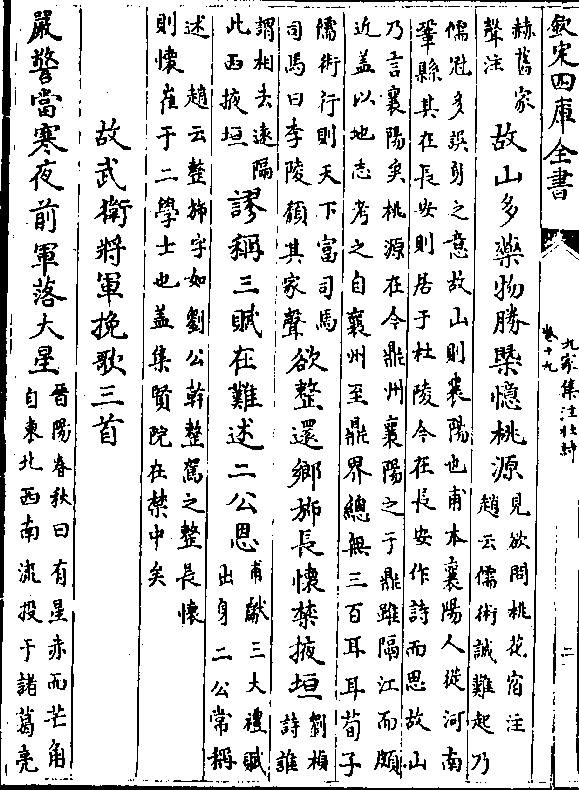 欽定四庫全書
九家集注杜詩
卷十九
二
赫舊家
聲注
故山多藥物勝槩憶桃源
見欲問桃花宿注
趙云儒術誠難起乃
儒冠多誤身之意故山則襄陽也甫本襄陽人從河南
鞏縣其在長安則居于杜陵今在長安作詩而思故山
乃言襄陽矣桃源在今鼎州襄陽之于鼎雖隔江而頗
近盖以地志考之自襄州至鼎界總無三百耳耳荀子
儒術行則天下富司馬
司馬曰李陵頹其家聲
欲整還鄉斾長懷禁掖垣
劉楨
詩誰
謂相去遠隔
此西掖垣
謬稱三賦在難述二公恩
甫獻三大禮賦
出身二公常稱
述 趙云整斾字如劉公幹整駕之整長懷
則懷崔于二學士也盖集賢院在禁中矣
故武衛將軍挽歌三首
嚴警當寒夜前軍落大星
晉陽春秋曰有星赤而芒角
自東北西南流投于諸葛亮